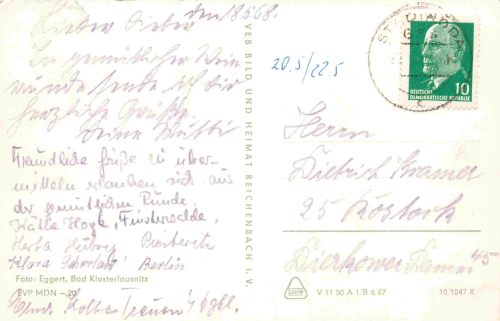 den 18.5.68.
Lieber Dieter
In gemütlicher Wein
runde sende ich dir
herzliche Grüße.
Deine Mutti
Freundliche Grüße zu über-
mitteln erlauben sich aus
der gemütlichen Runde
Käthe Finsterwalde,
Herta
Klara Berlin
Foto: Eggert, Bad Klosterlausnitz
EVP MDN –,20
Kolbe
VEB BILD UND HEIMAT REICHENBACH I. V.
20.5/22.5
STADTRODA
10
DEUTSCHE
DEMOKRATISCHE REPUBLIK
Herrn
Dietrich Kramer
25 Rostock
Dierkower Damm 45
V 11 50 A 1/B 6/67 10/1047 K